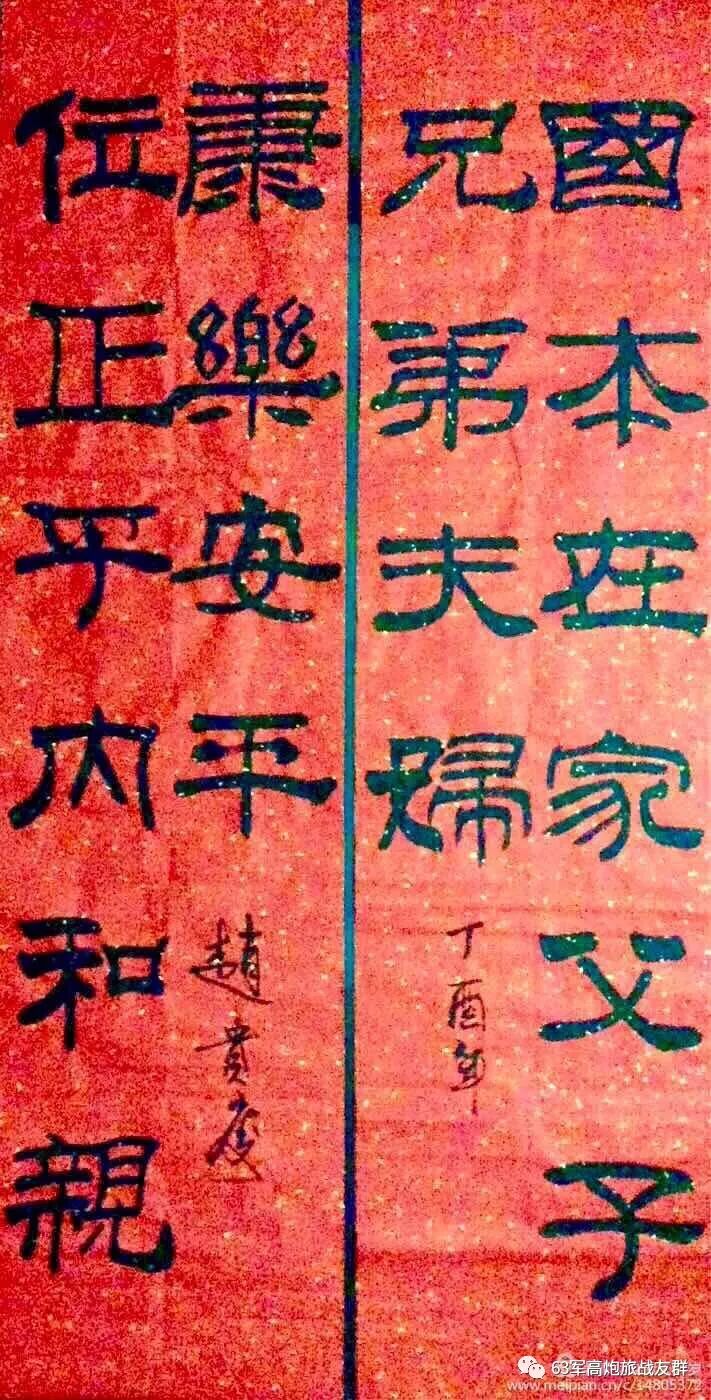 國本在家父子
兄弟夫婦
丁酉年
位正乎内和親
康樂安平
趙貴慶
63军高炮旅战友群